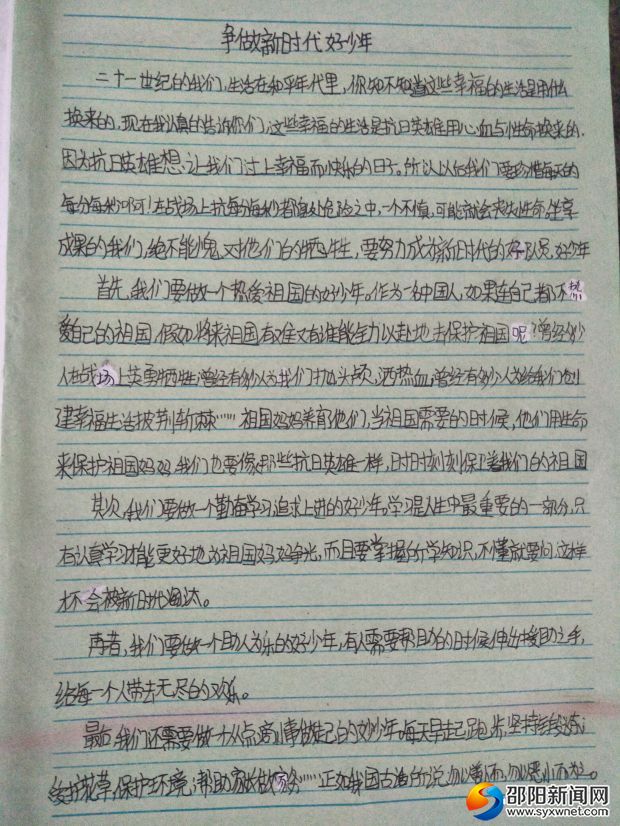 争做新时代好少年
二十一世纪的我们,生活在和平年代里,你知不知道这些幸福的生活是用什么
换来的,现在我认真的告诉你们,这些幸福的生活是抗日英雄用心血与性命换来的.
因为抗日英雄想让我们过上幸福而快乐的日子。所以给我们要珍惜每天的
每分每秒啊!在战场上抗每分每秒都身处危险之中,一个不慎,可能就会丧失性命.坐享
成果的我们,绝不能愧对他们的牺牲,要努力成为新时代的好队员,好少年
首先,我们要做一个热爱祖国的好少年。作为一名中国人,如果连自己都不热
爱自己的祖国,假如将来祖国有难又有谁能全力以赴地去保护祖国呢?曾经多少
人在战场上英勇牺牲;曾经有多少人为我们抛头颅,洒热血;曾经有多少人为给我们创
建幸福生活披荆斩棘……祖国妈妈养育他们,当祖国需要的时候,他们用生命
来保护祖国妈妈.我们也要像那些抗日英雄一样,时时刻刻保护着我们的祖国
其次,我们要做一个勤奋学习追求上进的好少年。学习是人生中最重要的一部分,只
有认真学习才能更好地为祖国妈妈争光,而且要掌握所学知识,不懂就要问,这样
才不会被新时代淘汰。
再者,我们要做一个助人为乐的好少年,有人需要帮助的时候伸出援助之手,
给每一个人带去无尽的欢乐。
最后,我们还需要做一个从点滴小事做起的好少年。每天早起跑步,坚持锻炼;
爱护花草,保护环境;帮助家长做家务……正如我国古语所说,勿以善小而不为,勿以恶小而为之。
邵阳新闻网
www.syxwnet.com